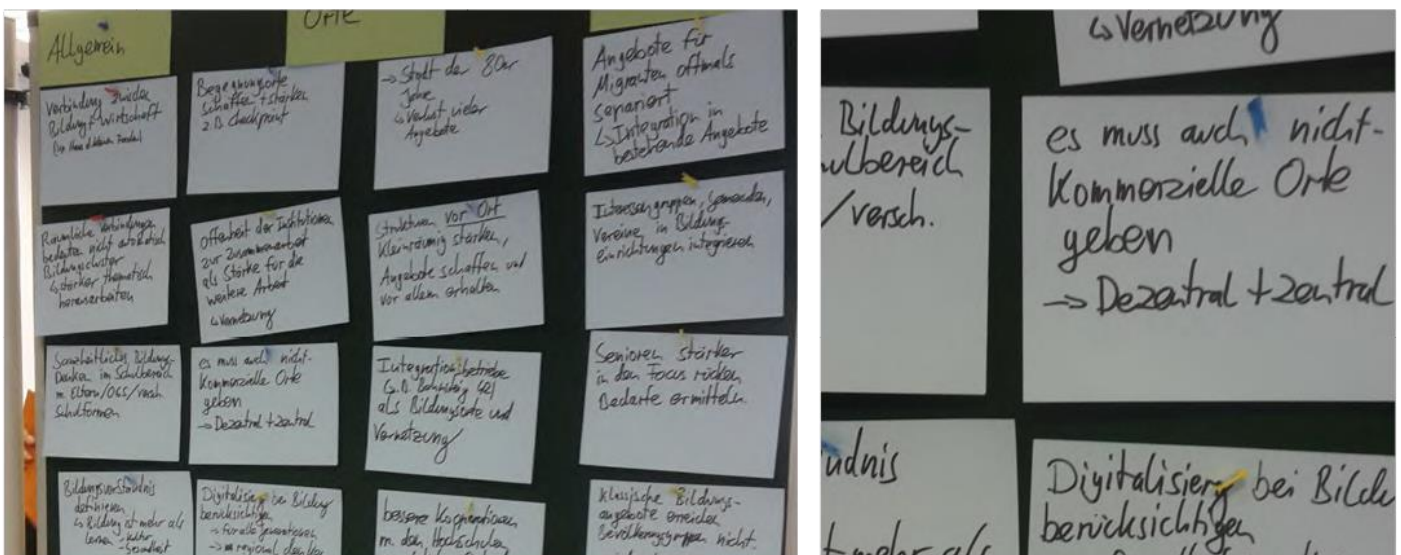 Allgemein
Orte
Verbindung zwischen
Bildung + Wirtschaft
Begegnungsorte
schaffen + stärken
z.B. Checkpoint
→ Stadt der 80er
Jahre
↳ Verlust vieler
Angebote
Angebote für
Migranten oftmals
separiert
↳ Integration in
bestehende Angebote
Räumliche Verbindungen
bedeuten nicht automatisch
Bildungscluster
↳ stärker thematisch
herausarbeiten
Offenheit der Institutionen
zur Zusammenarbeit
als Stärke für die
weitere Arbeit
↳ Vernetzung
Strukturen vor Ort
Kleinräumig stärken,
Angebote schaffen und
vor allem erhalten
Interessengruppen, Gemeinden,
Vereine in Bildungs-
einrichtungen integrieren
Ganzheitliches Bildungs-
Denken im Schulbereich
m. Eltern/OGS/versch.
Schulformen
es muss auch nicht-
Kommerzielle Orte
geben
→ Dezentral + zentral
Integrationsbetriebe
(z.B. Bahnsteig 42)
als Bildungsorte und
Vernetzung
Senioren stärker
in den Focus rücken
Bedarfe ermitteln
Bildungsverständnis
definieren
↳ Bildung ist mehr als
Lernen - Kultur
- Gesundheit
Digitalisierg bei Bildung
berücksichtigen
→ für alle Generationen
→ regional
bessere Kooperationen
m. den Hochschulen
Klassische Bildungs-
angebote erreichen
Bevölkerungsgruppen nicht
↳ Vernetzung
Bildungs-
ulbereich
/versch.
es muss auch nicht-
Kommerzielle Orte
geben
→ Dezentral + zentral
ändnis
t mehr als
Digitalisierg bei Bildu
berücksichtigen